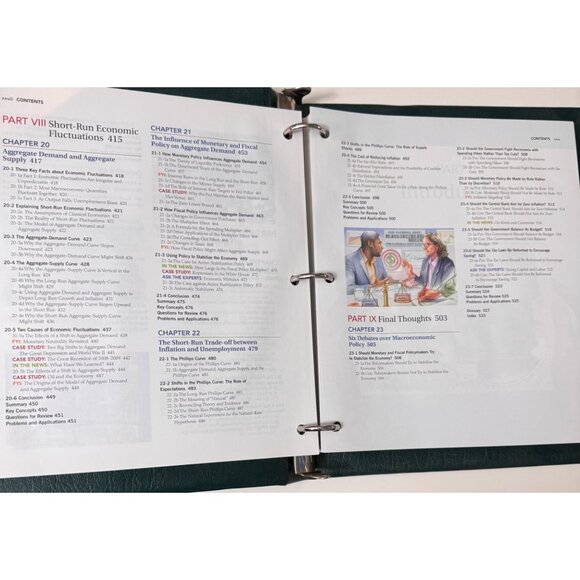 xxviii CONTENTS
PART VIII Short-Run Economic
Fluctuations 415
CHAPTER 20
Aggregate Demand and Aggregate
Supply 417
20-1 Three Key Facts about Economic Fluctuations 418
20-1a Fact 1: Economic Fluctuations Are Irregular and
Unpredictable 418
20-1b Fact 2: Most Macroeconomic Quantities
Fluctuate Together 420
20-1c Fact 3: As Output Falls, Unemployment Rises 420
20-2 Explaining Short-Run Economic Fluctuations 421
20-2a The Assumptions of Classical Economics 421
20-2b The Reality of Short-Run Fluctuations 421
20-2c The Model of Aggregate Demand and
Aggregate Supply 422
20-3 The Aggregate-Demand Curve 423
20-3a Why the Aggregate-Demand Curve Slopes
Downward 423
20-3b Why the Aggregate-Demand Curve Might Shift 426
20-4 The Aggregate-Supply Curve 428
20-4a Why the Aggregate-Supply Curve Is Vertical in the
Long Run 429
20-4b Why the Long-Run Aggregate-Supply Curve
Might Shift 430
20-4c Using Aggregate Demand and Aggregate Supply to
Depict Long-Run Growth and Inflation 431
20-4d Why the Aggregate-Supply Curve Slopes Upward
in the Short Run 432
20-4e Why the Short-Run Aggregate-Supply Curve
Might Shift 436
20-5 Two Causes of Economic Fluctuations 437
20-5a The Effects of a Shift in Aggregate Demand 438
FYI: Monetary Neutrality Revisited 440
CASE STUDY: Two Big Shifts in Aggregate Demand:
The Great Depression and World War II 441
CASE STUDY: The Great Recession of 2008–2009 442
IN THE NEWS: What Have We Learned? 444
20-5b The Effects of a Shift in Aggregate Supply 444
CASE STUDY: Oil and the Economy 447
FYI: The Origins of the Model of Aggregate Demand
and Aggregate Supply 448
20-6 Conclusion 449
Summary 450
Key Concepts 450
Questions for Review 451
Problems and Applications 451
CHAPTER 21
The Influence of Monetary and Fiscal
Policy on Aggregate Demand 453
21-1 How Monetary Policy Influences Aggregate Demand 454
21-1a The Theory of Liquidity Preference 455
21-1b The Downward Slope of the Aggregate-Demand
Curve 457
FYI: Interest Rates in the Long Run and the Short Run 458
21-1c Changes in the Money Supply 459
21-1d The Role of Interest-Rate Targets in Fed Policy 461
CASE STUDY: Why the Fed Watches the Stock Market (and
Vice Versa) 461
21-1e The Zero Lower Bound 462
21-2 How Fiscal Policy Influences Aggregate Demand 463
21-2a Changes in Government Purchases 464
21-2b The Multiplier Effect 464
21-2c A Formula for the Spending Multiplier 465
21-2d Other Applications of the Multiplier Effect 466
21-2e The Crowding-Out Effect 467
21-2f Changes in Taxes 468
FYI: How Fiscal Policy Might Affect Aggregate Supply 469
21-3 Using Policy to Stabilize the Economy 469
21-3a The Case for Active Stabilization Policy 469
IN THE NEWS: How Large Is the Fiscal Policy Multiplier? 470
CASE STUDY: Keynesians in the White House 472
ASK THE EXPERTS: Economic Stimulus 472
21-3b The Case against Active Stabilization Policy 472
21-3c Automatic Stabilizers 474
21-4 Conclusion 476
Summary 475
Key Concepts 476
Questions for Review 476
Problems and Applications 476
CHAPTER 22
The Short-Run Trade-off between
Inflation and Unemployment 479
22-1 The Phillips Curve 480
22-1a Origins of the Phillips Curve 480
22-1b Aggregate Demand, Aggregate Supply, and the
Phillips Curve 481
22-2 Shifts in the Phillips Curve: The Role of
Expectations 483
22-2a The Long-Run Phillips Curve 483
22-2b The Meaning of "Natural" 485
22-2c Reconciling Theory and Evidence 486
22-2d The Short-Run Phillips Curve 487
22-2e The Natural Experiment for the Natural-Rate
Hypothesis 488
CONTENTS
22-3 Shifts in the Phillips Curve: The Role of Supply
Shocks 489
22-4 The Cost of Reducing Inflation 492
22-4a The Sacrifice Ratio 493
22-4b Rational Expectations and the Possibility of Costless
Disinflation 494
22-4c The Volcker Disinflation 495
22-4d The Greenspan Era 496
22-4e A Financial Crisis Takes Us for a Ride along the Phillips
Curve 497
22-5 Conclusion 498
Summary 500
Key Concepts 500
Questions for Review 500
Problems and Applications 501
PART IX Final Thoughts 503
CHAPTER 23
Six Debates over Macroeconomic
Policy 505
23-1 Should Monetary and Fiscal Policymakers Try
to Stabilize the Economy? 506
23-1a Pro: Policymakers Should Try to Stabilize the
Economy 506
23-1b Con: Policymakers Should Not Try to Stabilize the
Economy 506
23-2 Should the Government Fight Recessions with
Spending Hikes Rather Than Tax Cuts? 508
23-3 Should Monetary Policy Be Made by Rule Rather
Than by Discretion? 510
FYI: Inflation Targeting
23-4 Should the Central Bank Aim for Zero Inflation?
23-5 Should the Government Balance Its Budget?
23-6 Should the Tax Laws Be Reformed to Encourage
Saving? 521
ASK THE EXPERTS: Taxing Capital and Labor
23-7 Conclusion 523
Summary 524
Questions for Review 525
Problems and Applications 525
Glossary 527
Index 533